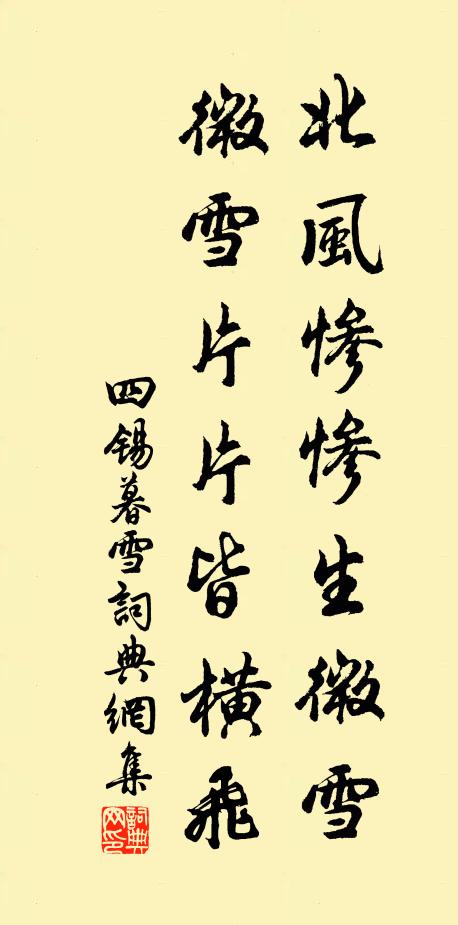 北風惨惨生微雪
微雪片片皆横飛
四錫暮雪詞典網集
詞典網印